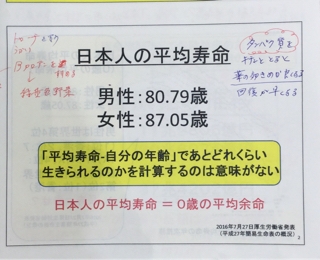 タンパク質を
日本人の平均寿命
男性：80.79歳
女性：87.05歳
「平均寿命-自分の年齢」であとどれくらい
生きられるのかを計算するのは意味がない
日本人の平均寿命 ＝ 0歳の平均余命
2016年7月27日厚生労働省発表
（平成27年簡易生命表の概況）
2